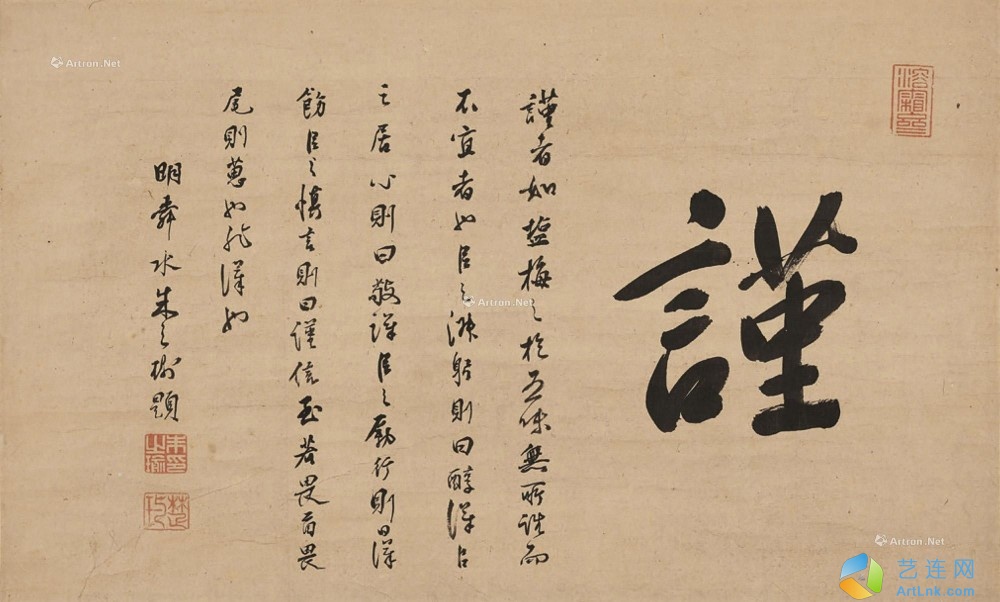 謹
謹者如塩梅之於五味無所而
不宜者如臣之淑躬則曰醇謹臣
之居心則曰敬謹臣之勵行則曰謹
飭臣之慎言則曰謹信至若畏首畏
尾則葸如非謹如
明舜水朱之瑜題
朱之瑜印
Artron.Net
Artron.Net
Artron.Net
艺连网
ArtLnk.com